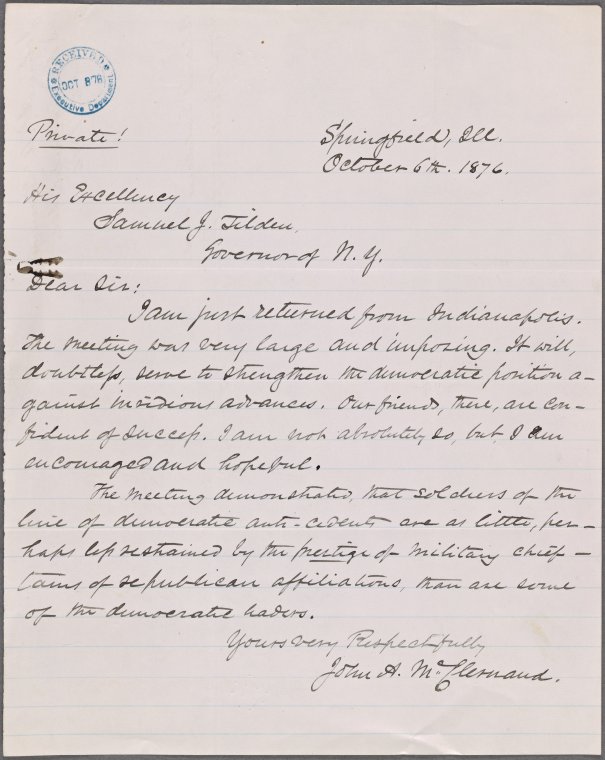 RECEIVED
OCT 8 76
Executive Department
Private!
Springfield, Ill.
October 6th. 1876.
His Excellency
Samuel J. Tilden,
Governor of N. Y.
Dear Sir:
I am just returned from Indianapolis.
The meeting was very large and imposing. It will,
doubtless, serve to strengthen the democratic position a-
gainst insidious advances. Our friends, there, are con-
fident of success. I am not absolutely so, but, I am
encouraged and hopeful.
The meeting demonstrated, that soldiers of the
line of democratic anti-cedents are as little, per-
haps less restrained by the prestige of military chief-
tains of republican affiliations, than are some
of the democratic leaders.
Yours very Respectfully
John A. McClernand.